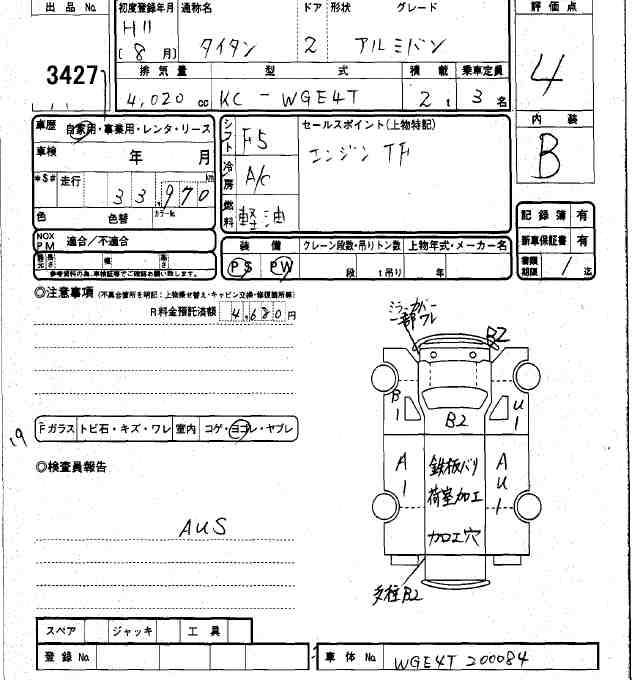 出品No. 初度登録年月 通称名 ドア 形状 グレード 評価点
H11
(8月) タイタン 2 アルミバン 4
3427
排気量 型式 積載 乗車定員
4,020 cc KC-WGE4T 2 t 3 名
内装
B
車歴 自家用・事業用・レンタ・リース
車検 年 月
*$# 走行 33,970 km
色 色替 カラーNo.
NOX PM 適合/不適合
参考資料の為、車検証等でご確認お願い致します。
シフト F5
冷房 A/c
燃料 軽油
セールスポイント(上物特記)
エンジンTF
装備 クレーン段数・吊りトン数 上物年式・メーカー名
PS PW 段 t吊り 年
記録簿 有
新車保証書 有
書類期限 / 迄
◎注意事項 (不具合箇所を明記:上物乗せ替え・キャビン交換・修復箇所等)
R料金預託済額 4,680円
19
Fガラス トビ石・キズ・ワレ 室内 コゲ・ヨゴレ・ヤブレ
◎検査員報告
AUS
ミラーカバー
一部ワレ
B2
B1
U1
B2
A1
AU1
鉄板バリ
荷室加工
加工穴
多種B2
スペア ジャッキ 工具
登録No. 車体No. WGE4T 200084